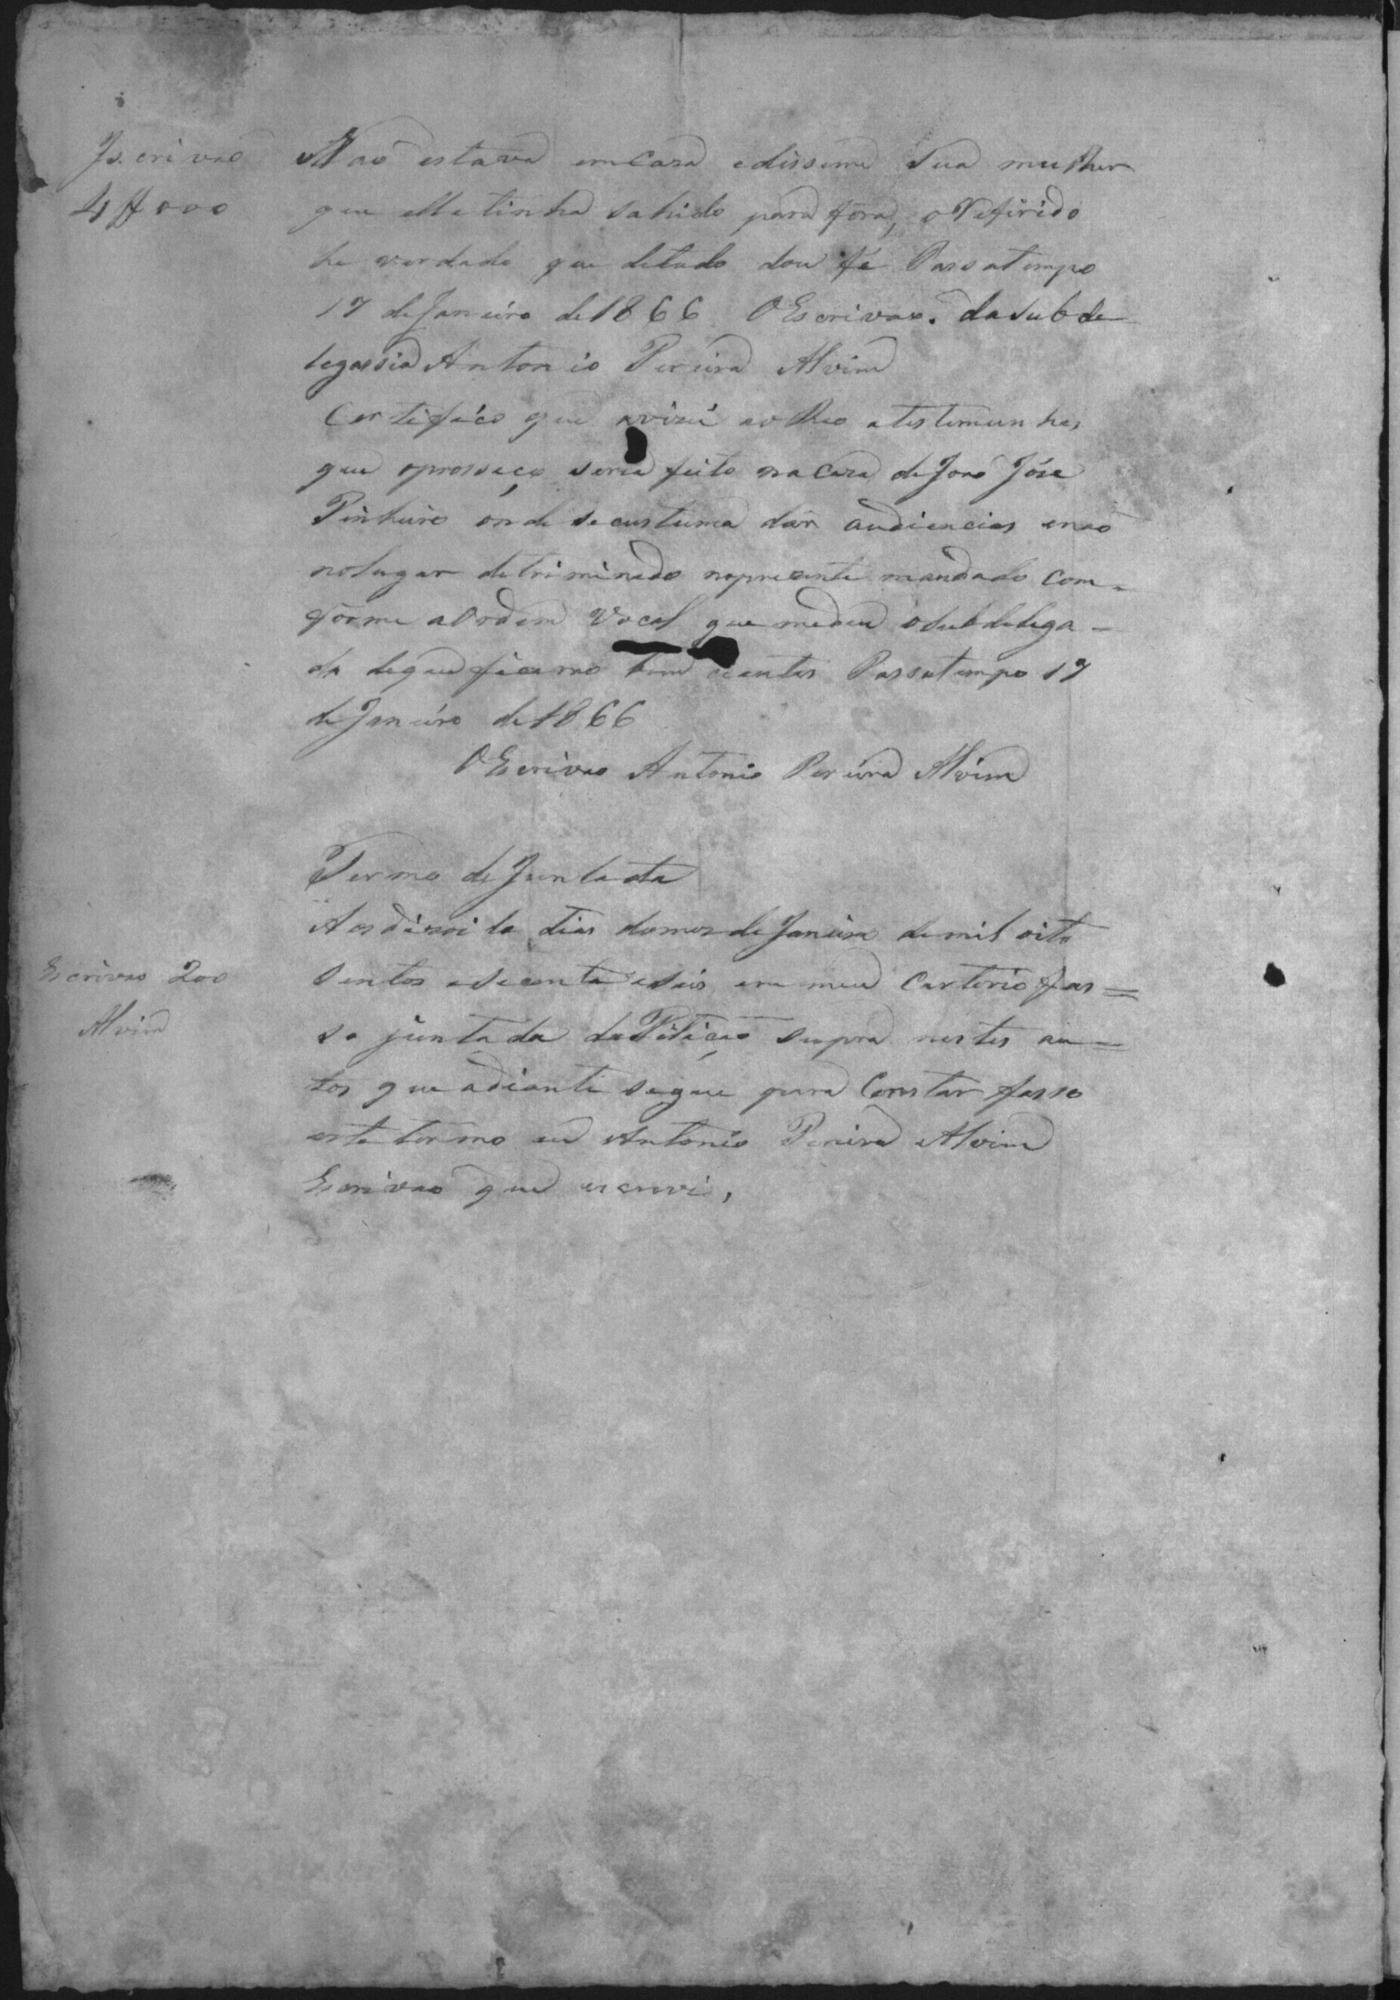 Escrivaõ
4$000
Naõ estava em caza edisseme Sua mulher
que elle tinha sahido para fora, o Referido
he verdade que detudo dou fé Passatempo
17 de Janeiro de 1866 O Escrivaõ. da Subde
legassia Antonio Pereira Alvim
Certifico que avizei ao Reo atestemunhas
que oprosseço seria feito na Caza de José José
Pinheiro onde secustuma dar audiencias enaõ
nolugar detriminado nopresente mandado Com-
forme a Ordem Vocal que medeu oSubdelega-
do dequeficaraõ bem cientes Passatempo 17
de Janeiro de 1866
O Escrivaõ Antonio Pereira Alvim
Termo de Juntada
Aosdizoito dias domez de Janeiro de mil oito
Sentos esecenta eseis em meu Cartorio fas=
so juntada da Petiçaõ supra nestes au=
tos que adiante segue para Constar fasso
este termo eu Antonio Pereira Alvim
Escrivaõ que escrevi,
Escrivaõ 200
Alvim